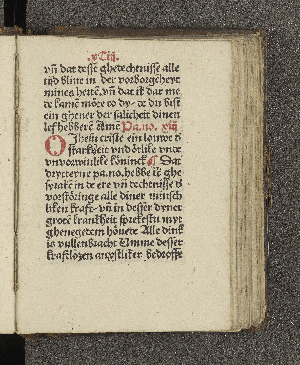 vñ dat desse ghedechtnisse alle
tyd bliue in der vorborgheheyt
mines herte. vñ dat ik dar me
de kame to dy. de du bist
ein gheuer der salicheit dinen
lefhebberē Amē Pa. no. xiij
O Jhesu criste ein louwe d
starkheit vnd
vnvorwinlike köninck Dat
drytteyne pa. no. hebbe ik ghe
spraken in de ere vñ dechtnisse d
vorstöringe alle diner minsch
liken kraft. vñ in desser dyner
grote krankheit sprekestu myt
gheneghedem höuede Alle dink
is vullenbracht Umme desser
kraftlozen angstliker bedroffe